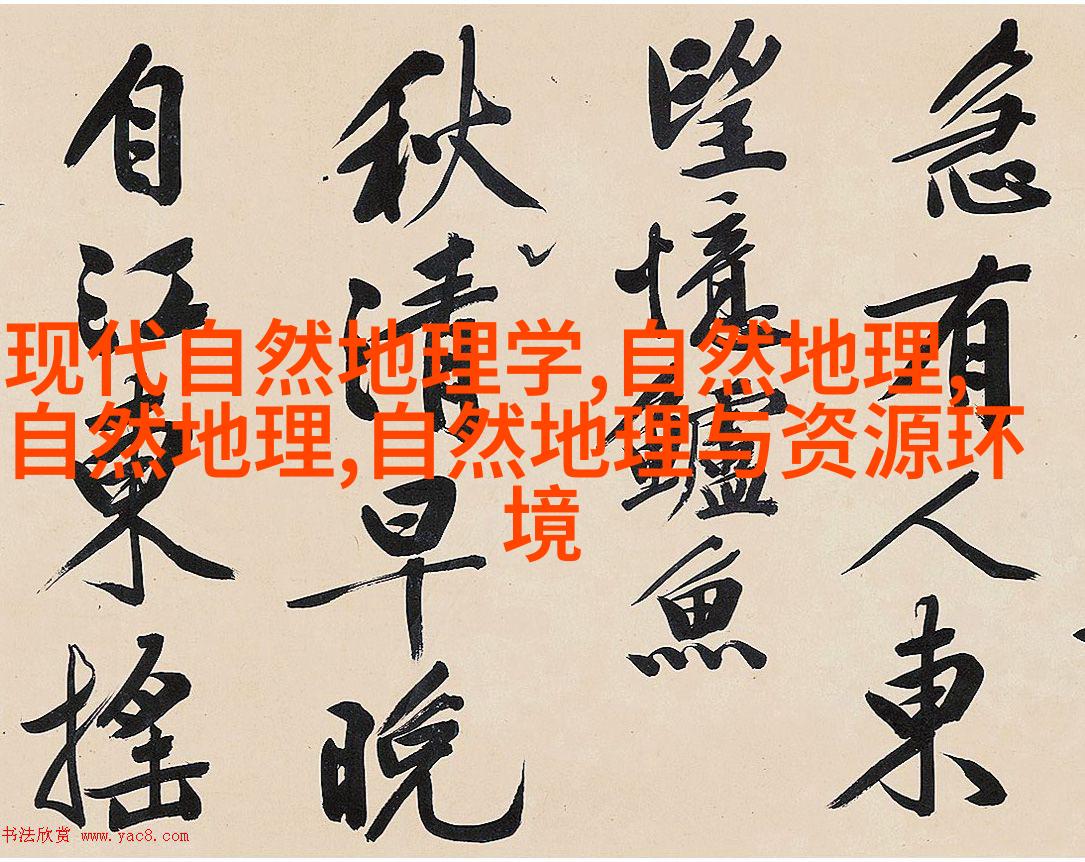 现代自然地理学,自然地理,
自然地理,自然地理与资源环
境
急有人東
望憶鱸魚
秋清早晚
自江東搖
书法欣赏 www.yac8.com